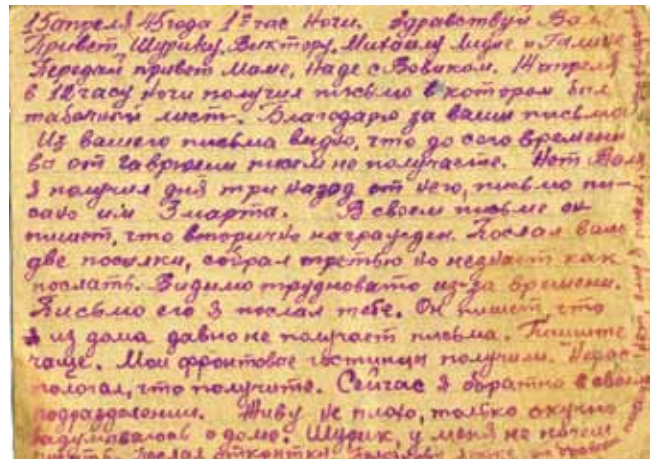 15 апреля 45 года 1 час ночи. Здравствуй Валя
Привет Шурику, Виктору, Михаилу Лидие и Галине
Передай привет Маме, Наде с Вовиком. 14 апреля
в 12 часу ночи получил письмо в котором был
табачный лист. Благодарю за ваши письма
Из вашего письма видно, что до сего времени
вы от Гаврюши писем не получаете. Нет Валя
я получил дня три назад от него, письмо пи-
сано им 3 марта. В своем письме он
пишет, что вторично награжден. Послал вам
две посылки, собрал третью но незнает как
послать. Видимо трудновато из-за времени.
Письмо его я послал тебе. Он пишет, что
из дома давно не получает письма. Пишите
чаще. Мои фронтовые гостинцы получили. Нерас
пологал, что получите. Сейчас я обратно в своем
подразделении. Живу не плохо, только скучно
задумываюсь о доме. Шурик, у меня не